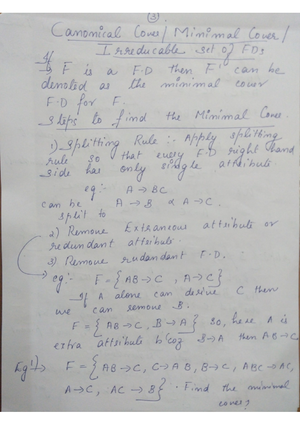 (3)
Canonical Cover / Minimal Cover /
Irreducable set of FDs
If
→ F is a F.D then F' can be
denoted as the minimal cover
F.D for F.
steps to find the Minimal Cover.
1) Splitting Rule :- Apply splitting
rule so that every F.D right hand
side has only single attribute
eg:- A → BC
can be A → B & A → C.
split to
2) Remove Extraneous attribute or
redundant attribute.
3) Remove rudandant F.D.
eg:- F = {AB → C, A → C}
If A alone can derive C then
we can remove B.
F = {AB → C, B → A} So, here A is
extra attribute b'coz B → A then AB → C.
Eg 1) → F = {AB → C, C → AB, B → C, ABC → AC,
A → C, AC → B} . Find the minimal
cover?